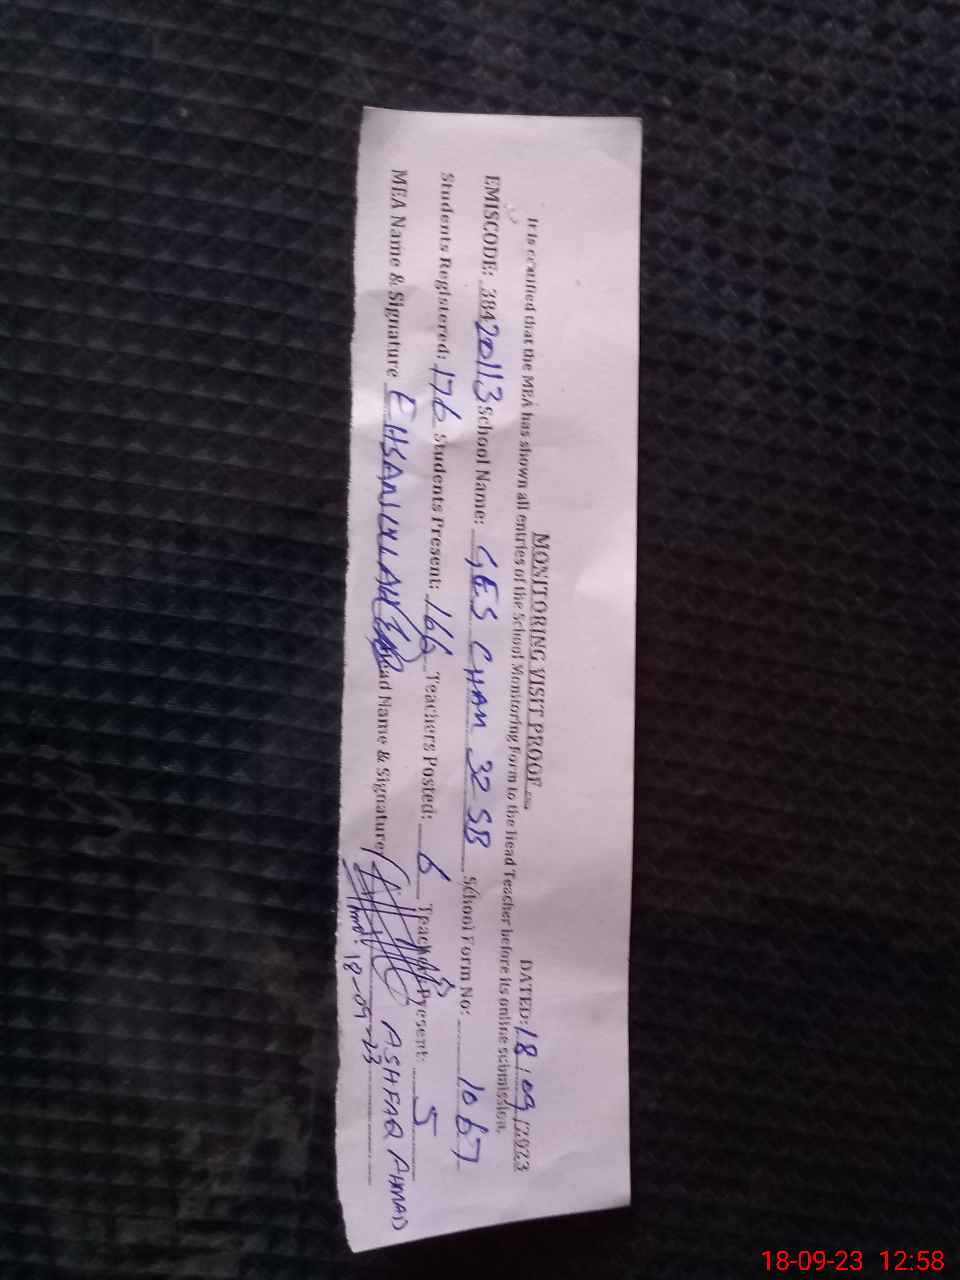 MONITORING VISIT PROOF
DATED: 18/09/2023
It is certified that the MEA has shown all entries of the School Monitoring Form to the Head Teacher before its online submission.
EMISCODE: 38420113 School Name: GES CHAK 32 SB School Form No: 1067
Students Registered: 176 Students Present: 166 Teachers Posted: 6 Teachers Present: 5
MEA Name & Signature EHSAN ULLAH Head Name & Signature ASHFAQ AHMAD
18-09-23
18-09-23 12:58